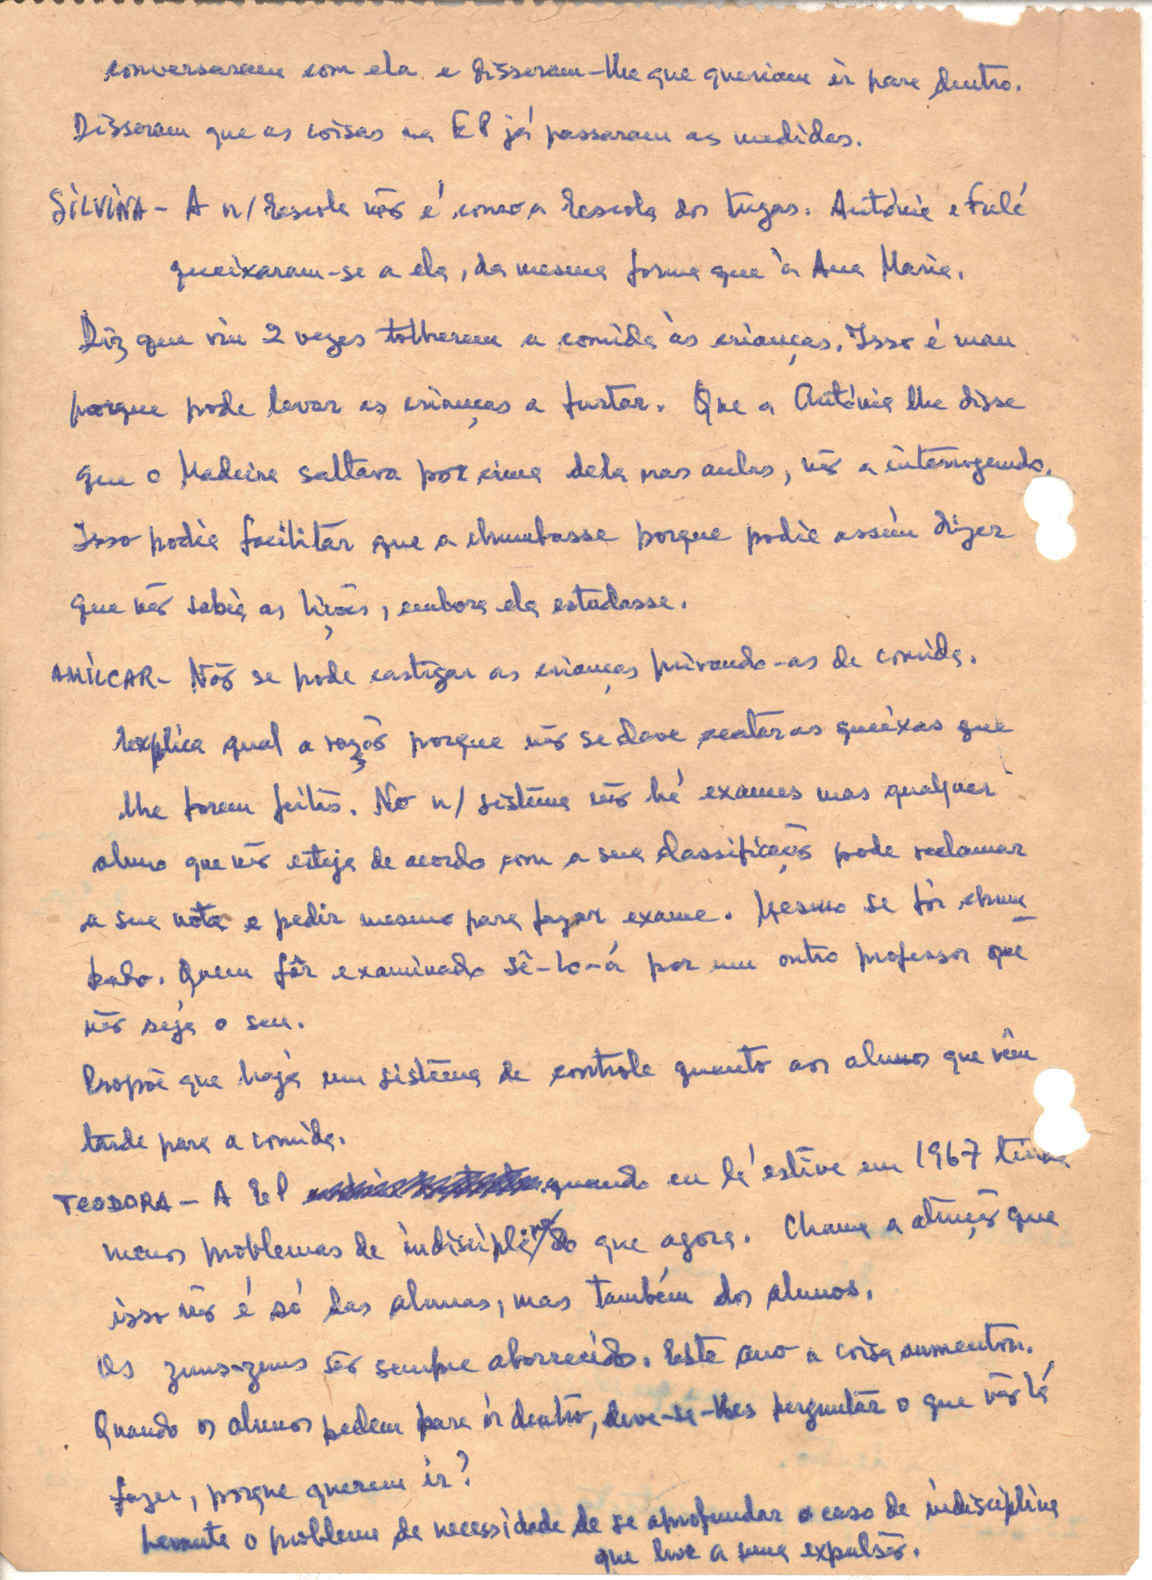 conversaram com ela e disseram-lhe que queriam ir para dentro.
Disseram que as coisas na EP já passaram as medidas.
SILVINA - A n/ Escola não é como a Escola dos tugas. Antónia e Fulé
queixaram-se a ela, da mesma forma que à Ana Maria.
Diz que viu 2 vezes tolherem a comida às crianças. Isso é mau
porque pode levar as crianças a furtar. Que a Antónia lhe disse
que o Madeira saltava por cima dela nas aulas, não a interrogando.
Isso podia facilitar que a chumbasse porque podia assim dizer
que não sabia as lições, embora ela estudasse.
AMÍLCAR - Não se pode castigar as crianças privando-as de comida.
Explica qual a razão porque não se deve acatar as queixas que
lhe forem feitas. No n/ sistema não há exames mas qualquer
aluno que não esteja de acordo com a sua classificação pode reclamar
a sua nota e pedir mesmo para fazer exame. Mesmo se fôr chum-
bado. Quem fôr examinado sê-lo-á por um outro professor que
não seja o seu.
Propõe que haja um sistema de controle quanto aos alunos que vêm
tarde para a comida.
TEODORA - A EP quando eu lá estive em 1967 tinha
menos problemas de indisciplina do que agora. Chama a atenção que
isso não é só das alunas, mas também dos alunos.
Os zuns-zuns são sempre aborrecidos. Este ano a coisa aumentou.
Quando os alunos pedem para ir dentro, deve-se-lhes perguntar o que vão lá
fazer, porque querem ir?
Levanta o problema da necessidade de se aprofundar o caso de indisciplina
que leve a uma expulsão.